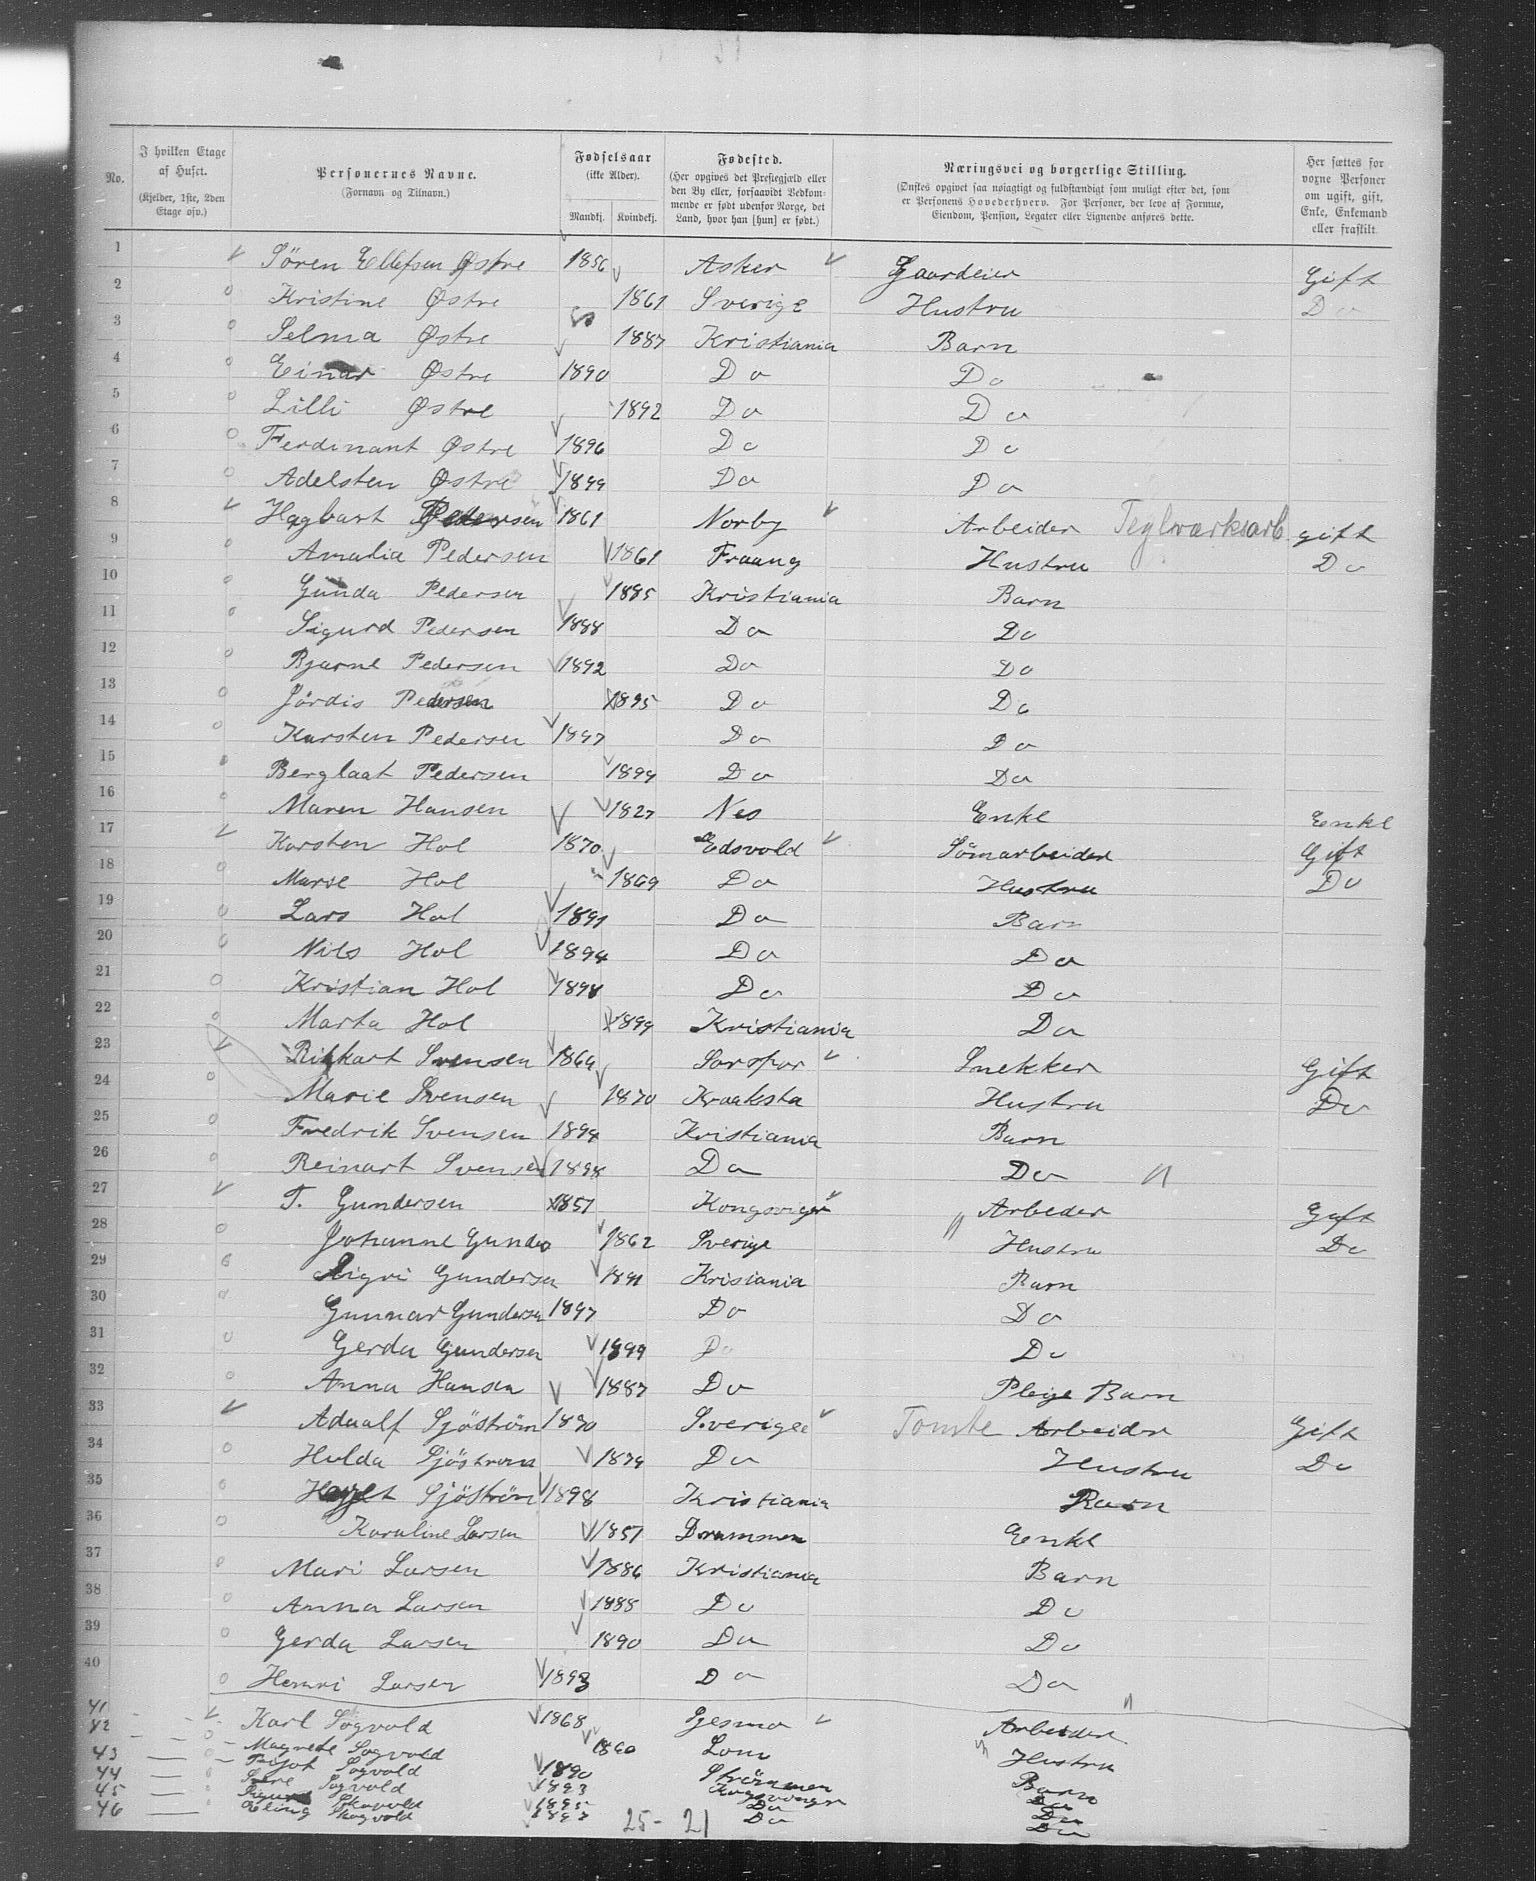 No.
I hvilken Etage af Huset. (Kjelder, 1ste, 2den Etage osv.)
Personernes Navne. (Fornavn og Tilnavn.)
Fødselsaar (ikke Alder). Mandkj. Kvindekj.
Fødested. (Her opgives det Prestegjæld eller den By eller, forsaavidt Vedkommende er født udenfor Norge, det Land, hvor han [hun] er født.)
Næringsvei og borgerlige Stilling. (Ønskes opgivet saa nøiagtigt og fuldstændigt som muligt efter det, som er Personens Hovederhverv. For Personer, der leve af Formue, Eiendom, Pension, Legater eller Lignende anføres dette.
Her sættes for voxne Personer om ugift, gift, Enke, Enkemand eller fraskilt.
1 Sören Ellefsen Østre 1856 Asker Gaardeier Gift
2 Kristine Østre 1861 Sverige Hustru Do
3 Selma Østre 1887 Kristiania Barn
4 Einar Østre 1890 Do Do
5 Lilli Østre 1892 Do Do
6 Ferdinant Østre 1896 Do Do
7 Adelsten Østre 1899 Do Do
8 Hagbart Pedersen 1861 Norby Arbeider Teglværksarb gift
9 Amalia Pedersen 1861 Fraang Hustru Do
10 Gunda Pedersen 1885 Kristiania Barn
11 Sigurd Pedersen 1888 Do Do
12 Bjarne Pedersen 1892 Do Do
13 Jördis Pedersen 1895 Do Do
14 Karsten Pedersen 1897 Do Do
15 Berglaat Pedersen 1899 Do Do
16 Maren Hansen 1827 Nes Enke Enke
17 Karsten Hol 1870 Edsvold Sömarbeider Gift
18 Marie Hol 1869 Do Hustru Do
19 Lars Hol 1891 Do Barn
20 Nils Hol 1894 Do Do
21 Kristian Hol 1898 Do Do
22 Marta Hol 1899 Kristiania Do
23 Rikkart Svensen 1869 Sarspor Snekker Gift
24 Marie Svensen 1870 Kraaksta Hustru Do
25 Fredrik Svensen 1894 Kristiania Barn
26 Reinart Svensen 1898 Do Do
27 T. Gundersen 1857 Kongsviger " Arbeder Gift
28 Johanne Gunder 1862 Sverige Hustru Do
29 Sigri Gundersen 1891 Krisiania Barn
30 Gunnar Gundersen 1897 Do Do
31 Gerda Gundersen 1899 Do Do
32 Anna Hansen 1887 Do Pleje Barn
33 Adualf Sjöström 1870 Sverige Tomte Arbeider Gift
34 Hulda Sjöstrom 1874 Do Hustru Do
35 Sjöström 1898 Kristiania Barn
36 Karaline Larsen 1857 Drammen Enke
37 Mari Larsen 1886 Kristiania Barn
38 Anna Larsen 1888 Do Do
39 Gerda Larsen 1890 Do Do
40 Henri Larsen 1893 Do Do
41 Karl Sogvold 1868 Gesmo " Arbeider
42 Magnete Sogvold 1860 Lom " Hustru
43 Sogvold 1890 Strömmen Barn
44 Sogvold 1893 Kogsvinger Do
45 Sigurd Skovold 1895 Do Do
46 Erling Skogvold 1897 Do Do
25 - 21